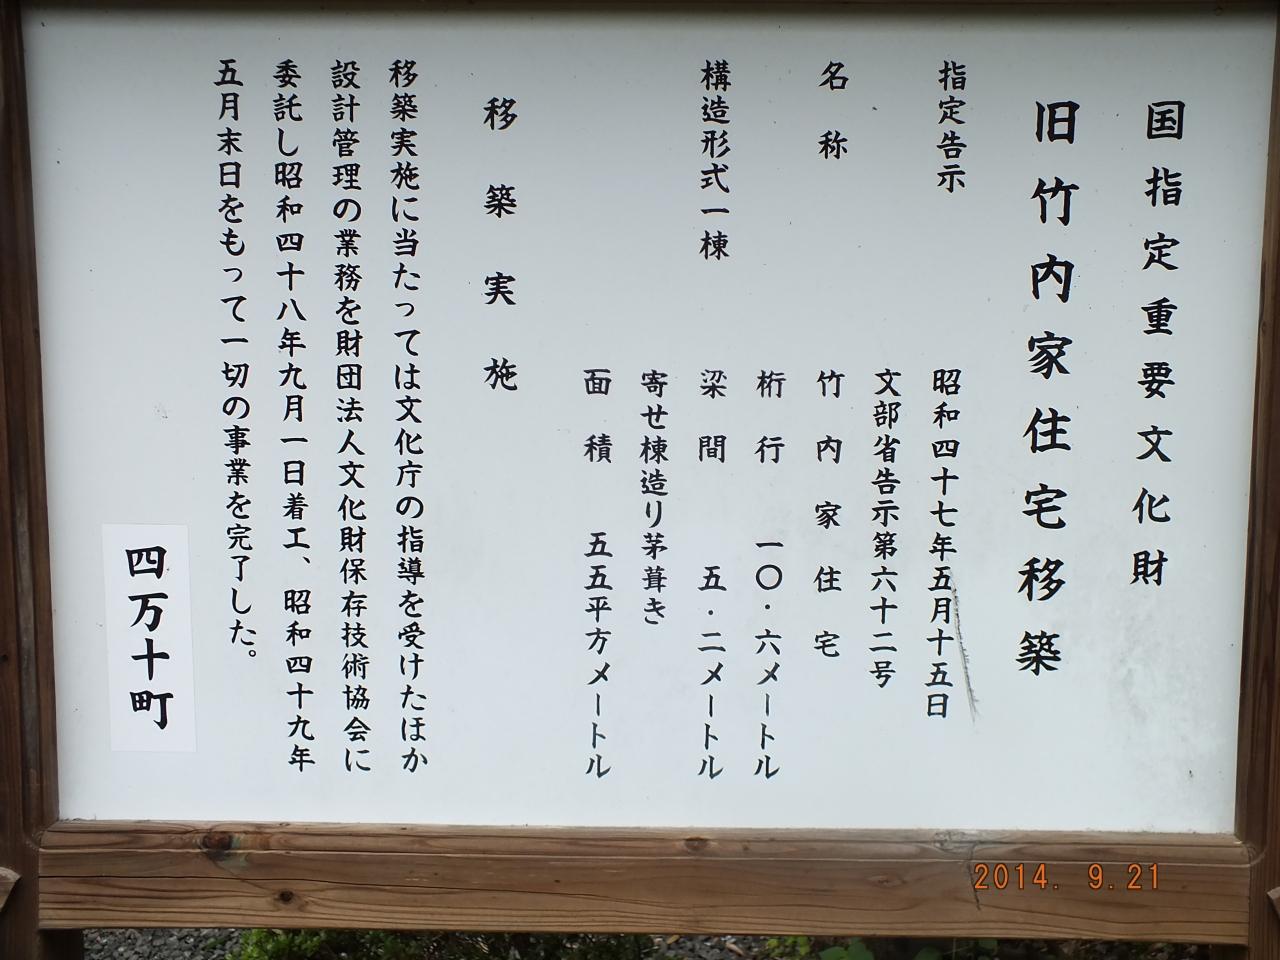 国指定重要文化財
旧竹内家住宅移築
指定告示 昭和四十七年五月十五日
文部省告示第六十二号
名称 竹内家住宅
桁行 一〇・六メートル
構造形式一棟 梁間 五・二メートル
寄せ棟造り茅葺き
面積 五五平方メートル
移築実施
移築実施に当たっては文化庁の指導を受けたほか
設計管理の業務を財団法人文化財保存技術協会に
委託し昭和四十八年九月一日着工、昭和四十九年
五月末日をもって一切の事業を完了した。
四万十町
2014. 9.21